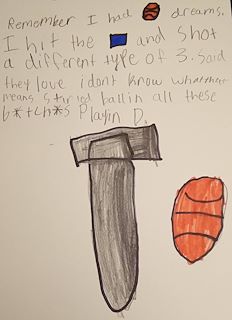 Remember I had dreams.
I hit the and shot
a different type of 3. Said
they love i dont know what that
means started ballin all these
b*tch*s Playin D.